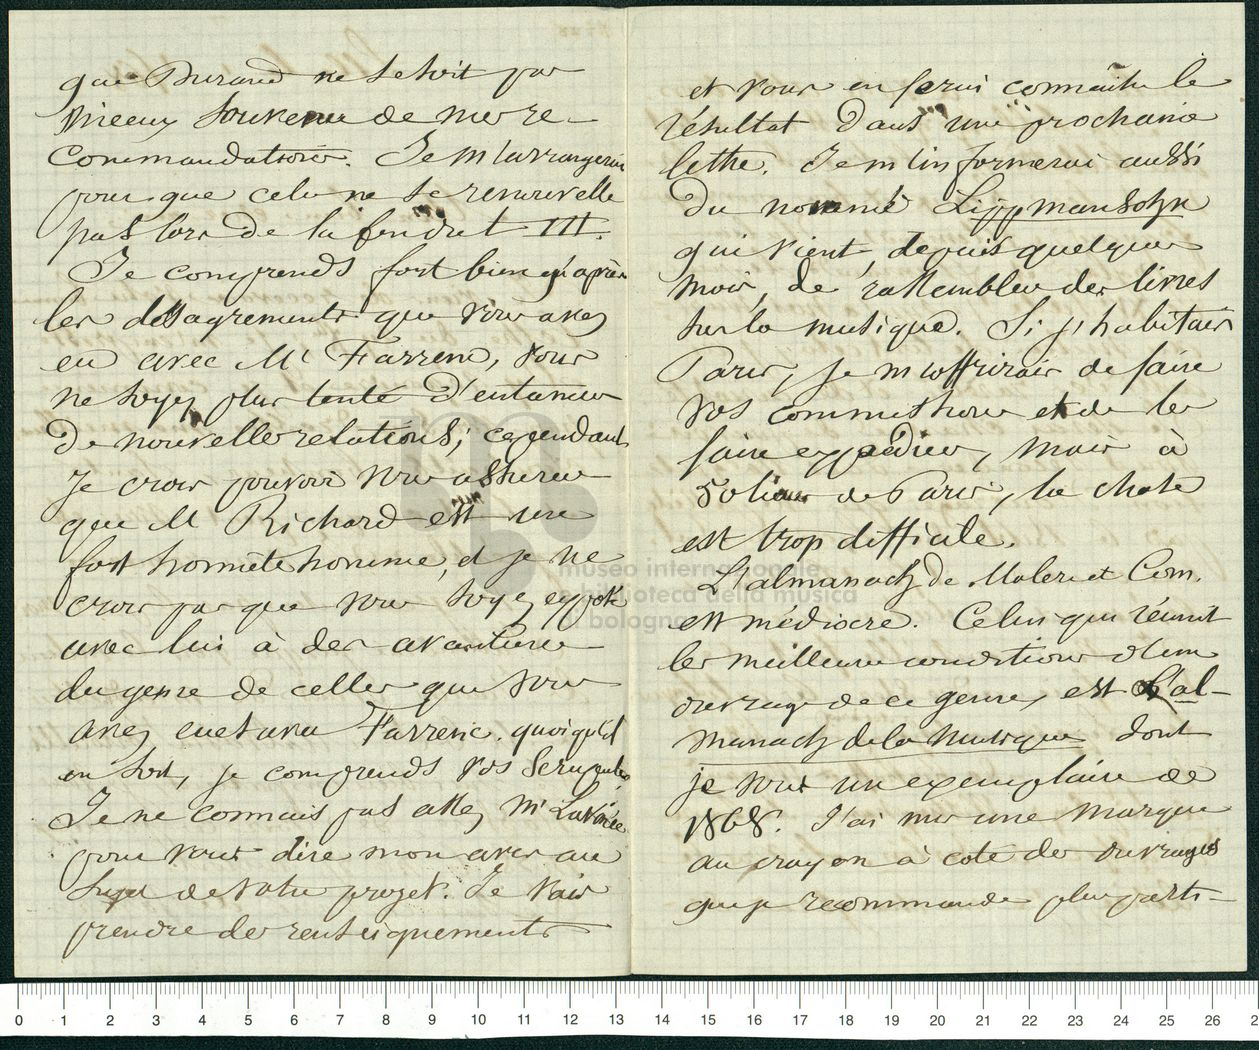 que Durand ne se soit pas
mieux souvenu de mes re-
commandations. Je m'arrangerai
pour que cela ne se renouvelle
pas lors de la fin du t III.
Je comprends fort bien qu'après
les désagrements que vous avez
eu avec Mr Farrenc, vous
ne soyez plus tenté d'entamer
de nouvelles relations; cependant
je crois pouvoir vous assurer
que M Richard est un
fort honnête homme, et je ne
crois pas que vous soyez exposé
avec lui à des aventures
du genre de celles que vous
avez eues avec Farrenc. quoiqu'il
en soit, je comprends vos scrupules.
Je ne connais pas assez Mr Lavinée
pour vous dire mon avis au
sujet de votre projet. Je vais
prendre des renseignements
et vous en ferai connaitre le
résultat dans une prochaine
lettre. Je m'informerai aussi
du nommé Lippmansohn
qui vient, depuis quelques
mois, de rassembler des livres
sur la musique. Si j'habitais
Paris, je m'offrirais de faire
vos commissions et de les
faire expédier, mais à
50 lieues de Paris, la chose
est trop difficile.
L'almanach de Moleri et Com.
est médiocre. Celui qui réunit
les meilleures conditions d'un
ouvrage de ce genre, est L'al-
manach de la Musique dont
je vous un exemplaire de
1868. J'ai mis une marque
au crayon à coté des ouvrages
que je recommande plus parti-
museo internazionale
e biblioteca della musica
di bologna
0 1 2 3 4 5 6 7 8 9 10 11 12 13 14 15 16 17 18 19 20 21 22 23 24 25 26